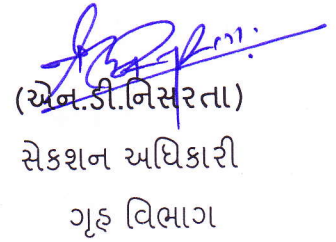 (એન.ડી.નિસરતા)
સેકશન અધિકારી
ગૃહ વિભાગ